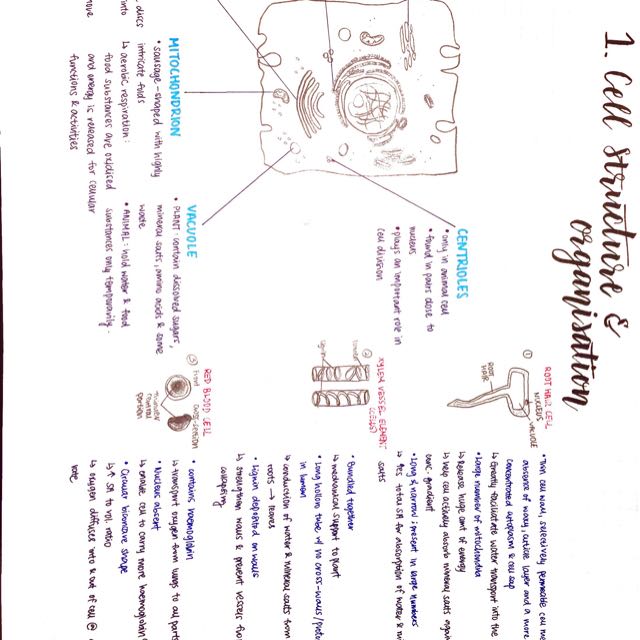 1. Cell structure &
organisation
CENTRIOLES
• only in animal cell
• found in pairs close to
nucleus
• plays an important role in
cell division
MITOCHONDRION
• sausage-shaped with highly
intricate folds
↳ aerobic respiration:
food substances are oxidised
and energy is released for cellular
functions & activities
VACUOLE
• PLANT: contain dissolved sugars,
mineral salts, amino acids & some
waste
• ANIMAL: hold water & food
substances only temporarily.
discs
into
① ROOT HAIR CELL
NUCLEUS
VACUOLE
ROOT
HAIR
• Thin cell wall, selectively permeable cell
absence of waxy, cuticle layer and a more
concentrated cytoplasm & cell sap
↳ Greatly facilitate water transport into the
• Large number of mitochondria
↳ Release huge amt of energy
↳ help cell actively absorb mineral salts
conc. gradient
• Long & narrow; present in large numbers
↳ ↑es total SA for absorption of water &
salts
② XYLEM VESSEL ELEMENT
(CELLS)
lignin
• Bundled together
↳ mechanical support to plant
• Long hollow tube, w/ no cross-walls/
in lumen
↳ conduction of water & mineral salts from
roots → leaves
• Lignin deposited on walls
↳ strengthen walls & prevent vessels
collapsing
③ RED BLOOD CELL
Front
cross-section
Thinner
central
portion
• contains haemoglobin
↳ transport oxygen from lungs to all
• Nucleus absent
↳ enable cell to carry more haemoglobin
• Circular biconcave shape
↳ ↑ SA to vol. ratio
↳ oxygen diffuses into & out of cell @
rate